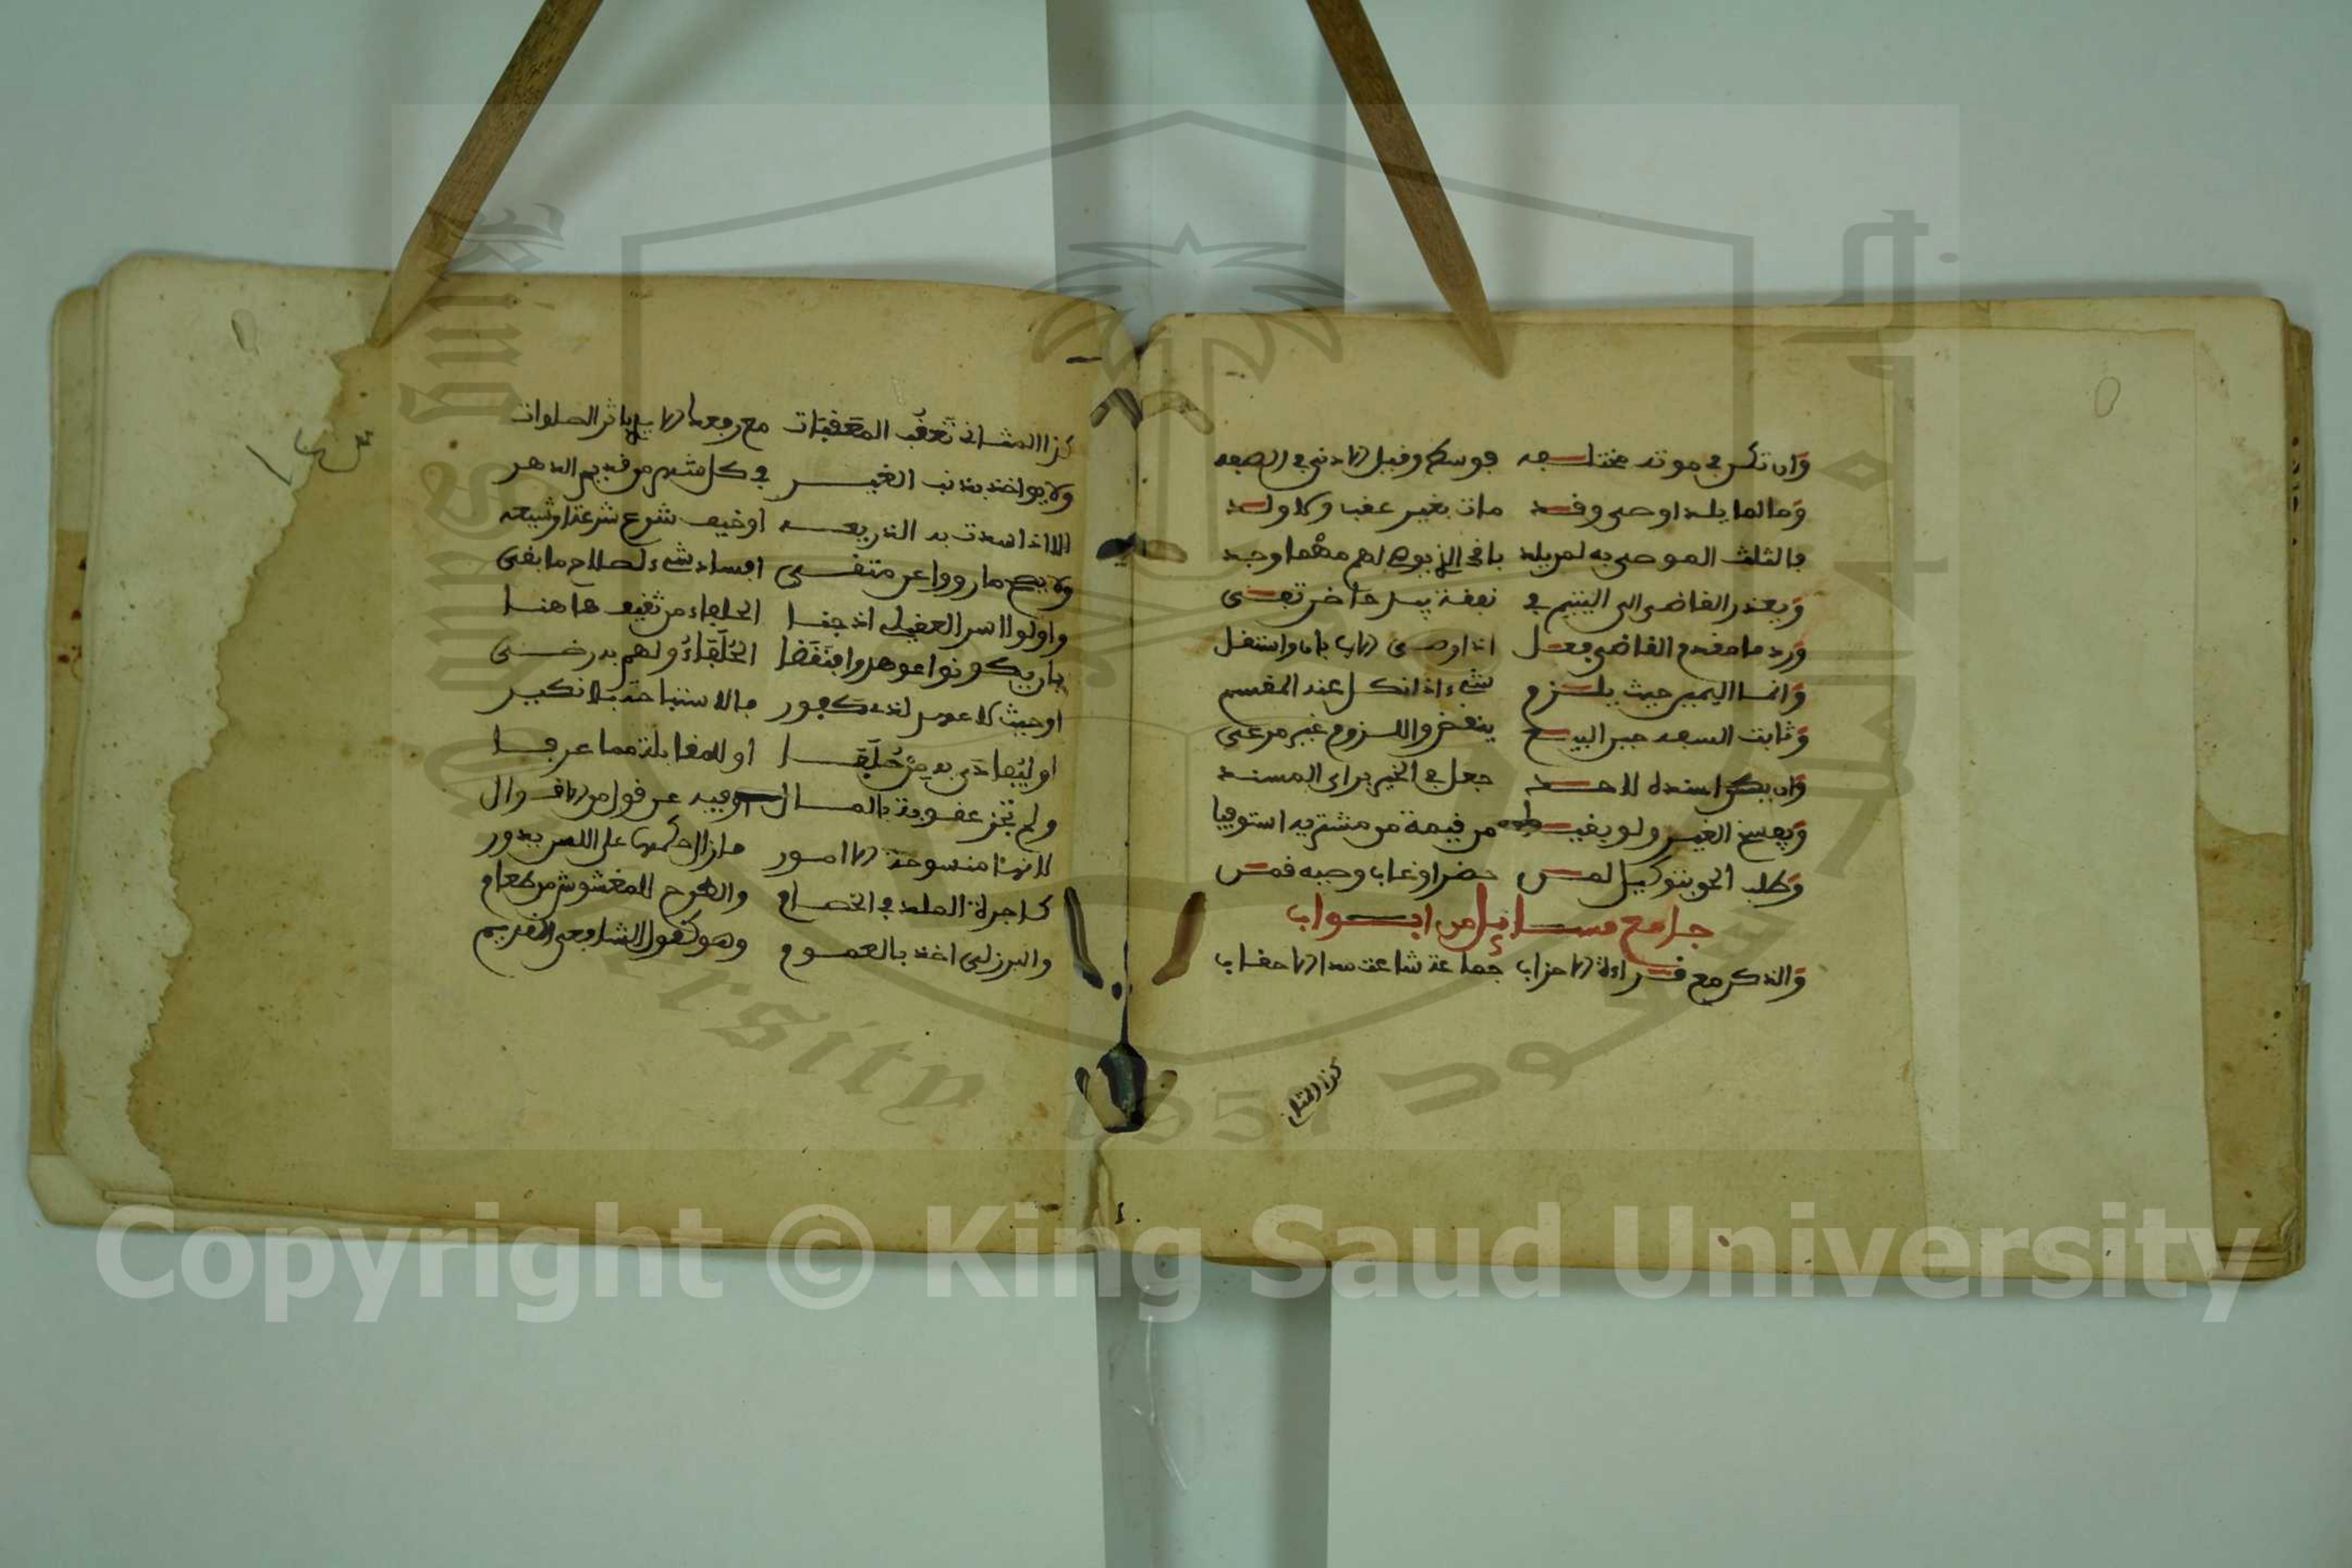 وان تكن في موته مختلفه فوسطه وقبل الادنى في الصفه
وما لما يلد اوصى وقد مات بغير عقب ولا ولد
فالثلث الموصى به لمن يلد باقي لهم مهما وجد
ويعذر القاضي الى اليتيم في نفقة
ورد ما مقدم القاضي فعل اذا اوصى الاب بان واستقل
وانما اليمين حيث يلزم شيء اذا نكل عند المقسم
وثابت السفه حين البيع ينقض واللزوم غير مرعي
وان يكن اسنده لاحد جعل في الخير براي المسند
ويفسخ الغير ولو بغير من قيمة من مشتريه استوفيا
وطلب الحق بتوكيل لمن حضر او غاب وجبه قمن
جامع مسائل من ابواب
والذكر مع قراءة الاحزاب جماعة شاعت مدا الاحقاب
كذا المثل
كذا المثاني تعقب المعقبات مع رفع الايدي باثر الصلوات
ولا يواخذ بذنب الغير في كل من قديم الدهر
الا اذا سدت به الذريعه او خيف شرع شرعة او شيعه
ولا يصح ما رووا عن متقي افساد شيء لصلاح ما بقي
واولوا اسر العقيلي اذ جفا الحلفاء من ثقيف هاهنا
بان يكونوا عوهدوا فنقضا الحلفاء ولهم به رضى
او حيث لا عهد لذي كفور فالاستباحة بلا نكير
او ليفادى به من حلفا او للمقابلة مما عرفا
ولم تجز عقوبة بالمال او فيه عن قول من الاقوال
لانها منسوخة الامور ما زال حكمها على اللس يدور
كاجرة الملد في الخصام والطرح للمغشوش من طعام
والبرزلي اخذ بالعموم وهو كقول الشافعي القديم
Copyright © King Saud University
King Saud University 1957
جامعة الملك سعود